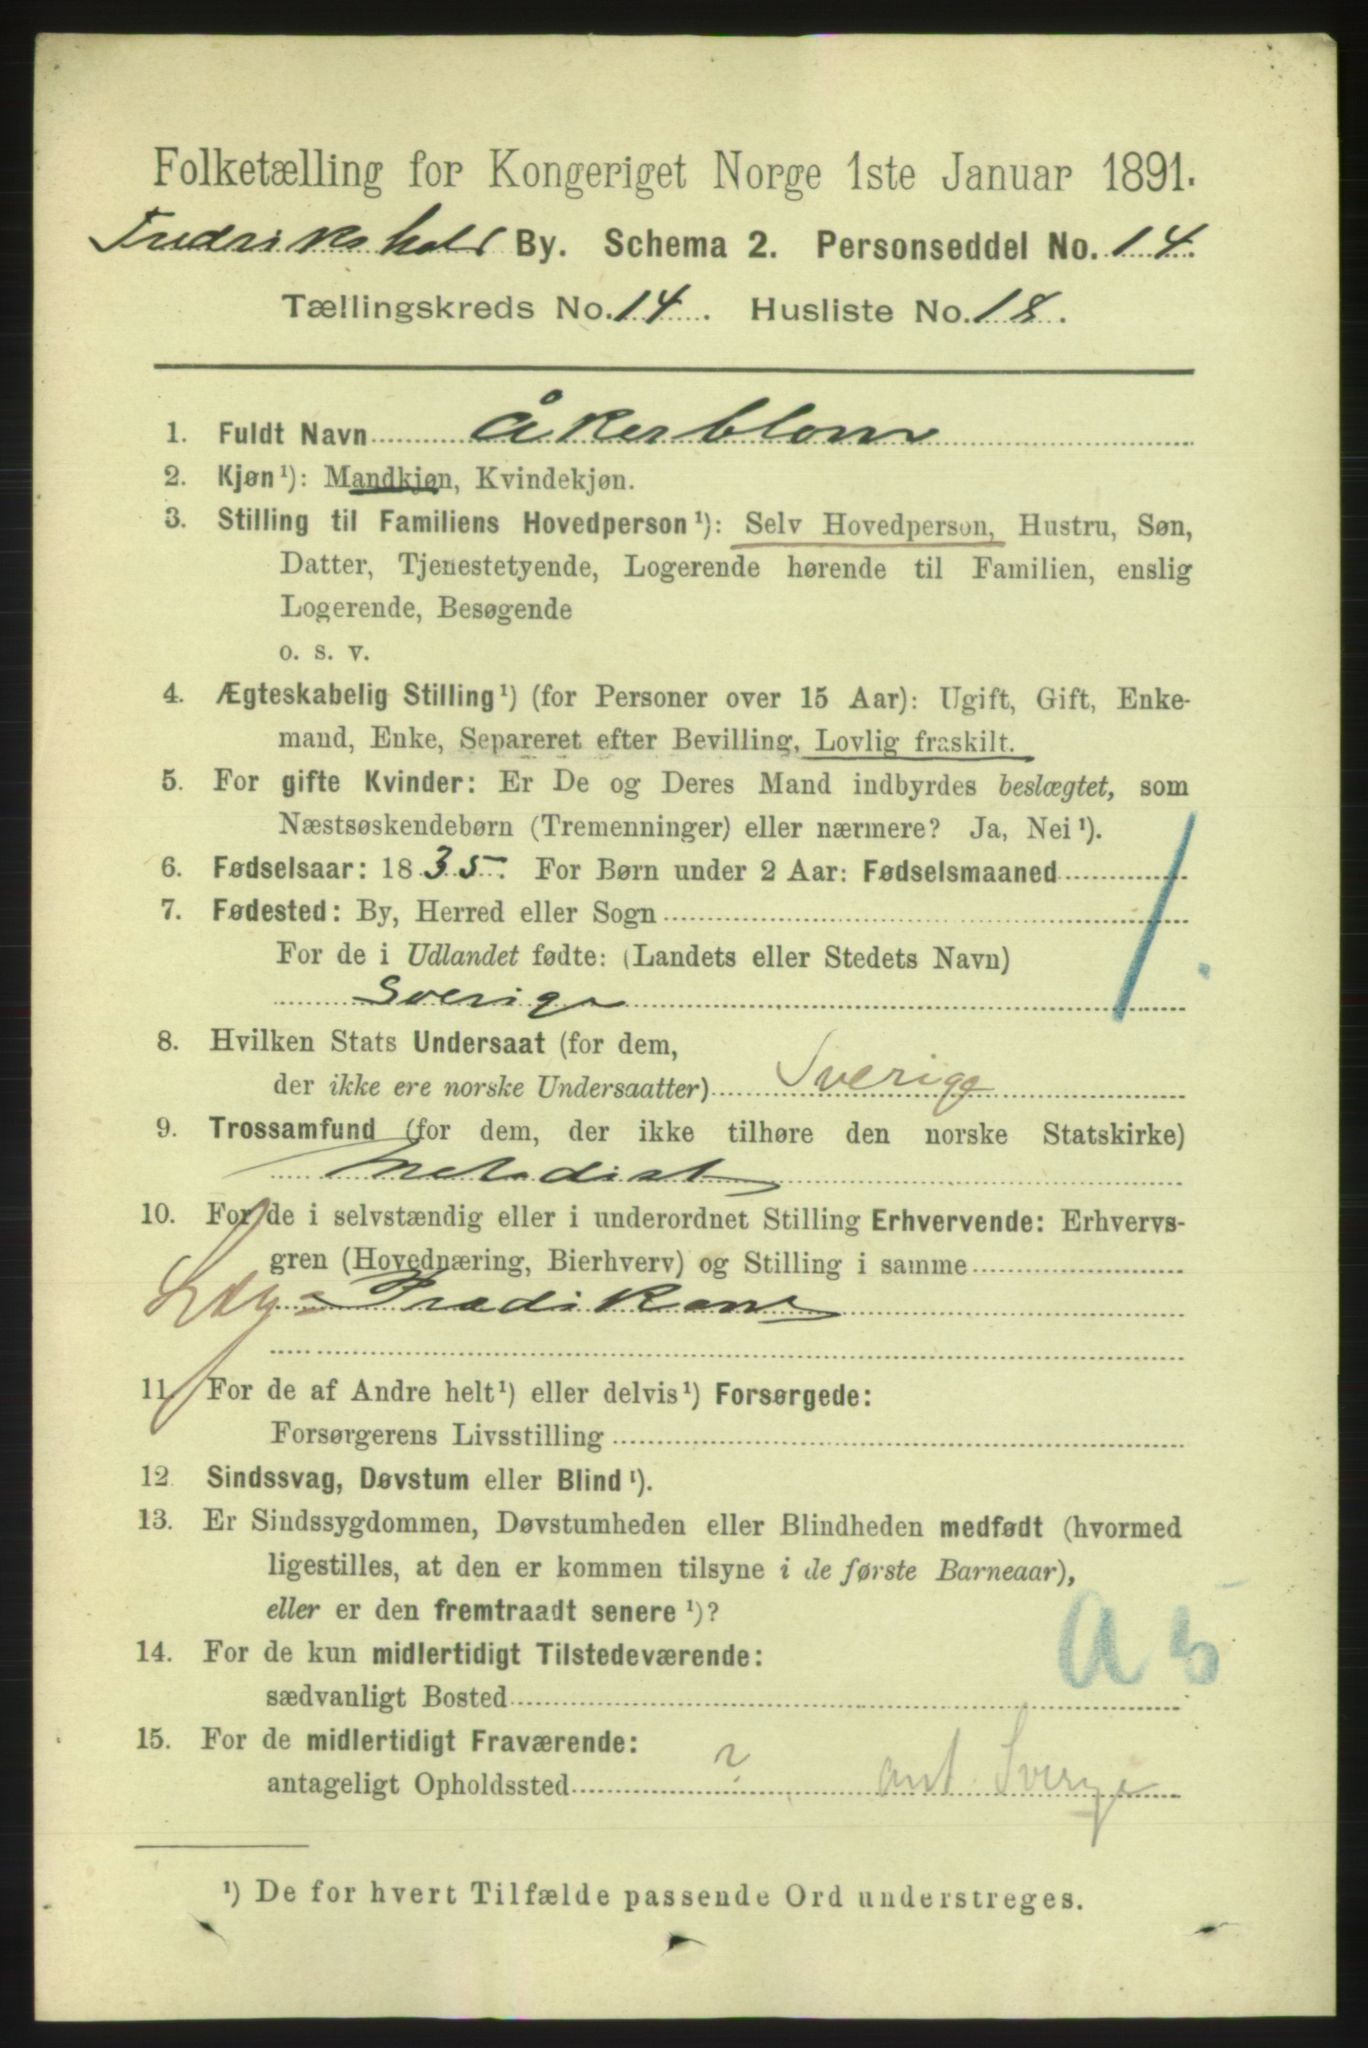 Folketælling for Kongeriget Norge 1ste Januar 1891.
Fredrikshald By. Schema 2. Personseddel No. 14.
Tællingskreds No. 14. Husliste No. 18.
1. Fuldt Navn Åkerblom
2. Kjøn¹): Mandkjøn, Kvindekjøn.
3. Stilling til Familiens Hovedperson¹): Selv Hovedperson, Hustru, Søn,
Datter, Tjenestetyende, Logerende hørende til Familien, enslig
Logerende, Besøgende
o. s. v.
4. Ægteskabelig Stilling¹) (for Personer over 15 Aar): Ugift, Gift, Enke-
mand, Enke, Separeret efter Bevilling, Lovlig fraskilt.
5. For gifte Kvinder: Er De og Deres Mand indbyrdes beslægtet, som
Næstsøskendebørn (Tremenninger) eller nærmere? Ja, Nei¹).
6. Fødselsaar: 1835. For Børn under 2 Aar: Fødselsmaaned
7. Fødested: By, Herred eller Sogn
For de i Udlandet fødte: (Landets eller Stedets Navn)
Sverige
8. Hvilken Stats Undersaat (for dem,
der ikke ere norske Undersaatter) Sverige
9. Trossamfund (for dem, der ikke tilhøre den norske Statskirke)
Metodist
10. For de i selvstændig eller i underordnet Stilling Erhvervende: Erhvervs-
gren (Hovednæring, Bierhverv) og Stilling i samme
Læg- Prædikant
11. For de af Andre helt¹) eller delvis¹) Forsørgede:
Forsørgerens Livsstilling
12. Sindssvag, Døvstum eller Blind¹).
13. Er Sindssygdommen, Døvstumheden eller Blindheden medfødt (hvormed
ligestilles, at den er kommen tilsyne i de første Barneaar),
eller er den fremtraadt senere¹)?
A 5
14. For de kun midlertidigt Tilstedeværende:
sædvanligt Bosted
15. For de midlertidigt Fraværende:
antageligt Opholdssted ? ant. Sverge
¹) De for hvert Tilfælde passende Ord understreges.